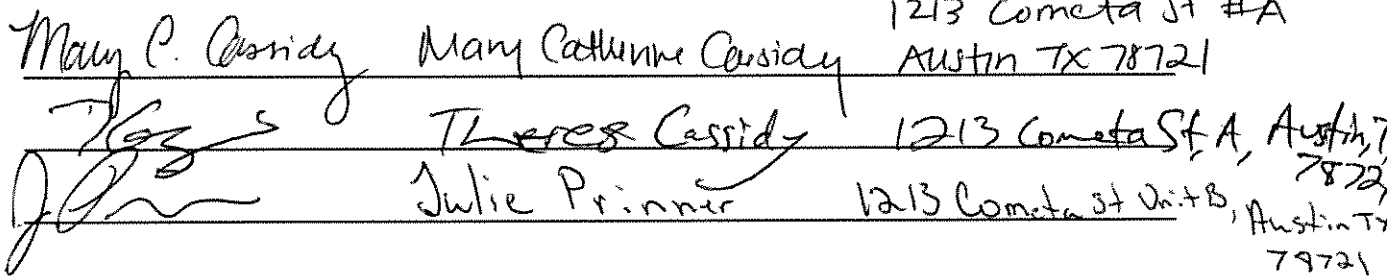 1213 Cometa St #A
Mary C. Cassidy Mary Catherine Cassidy Austin TX 78721
Therese Cassidy 1213 Cometa St, A, Austin, T
7872
Julie Prinner 1213 Cometa st Unit B, Austin TX
78721